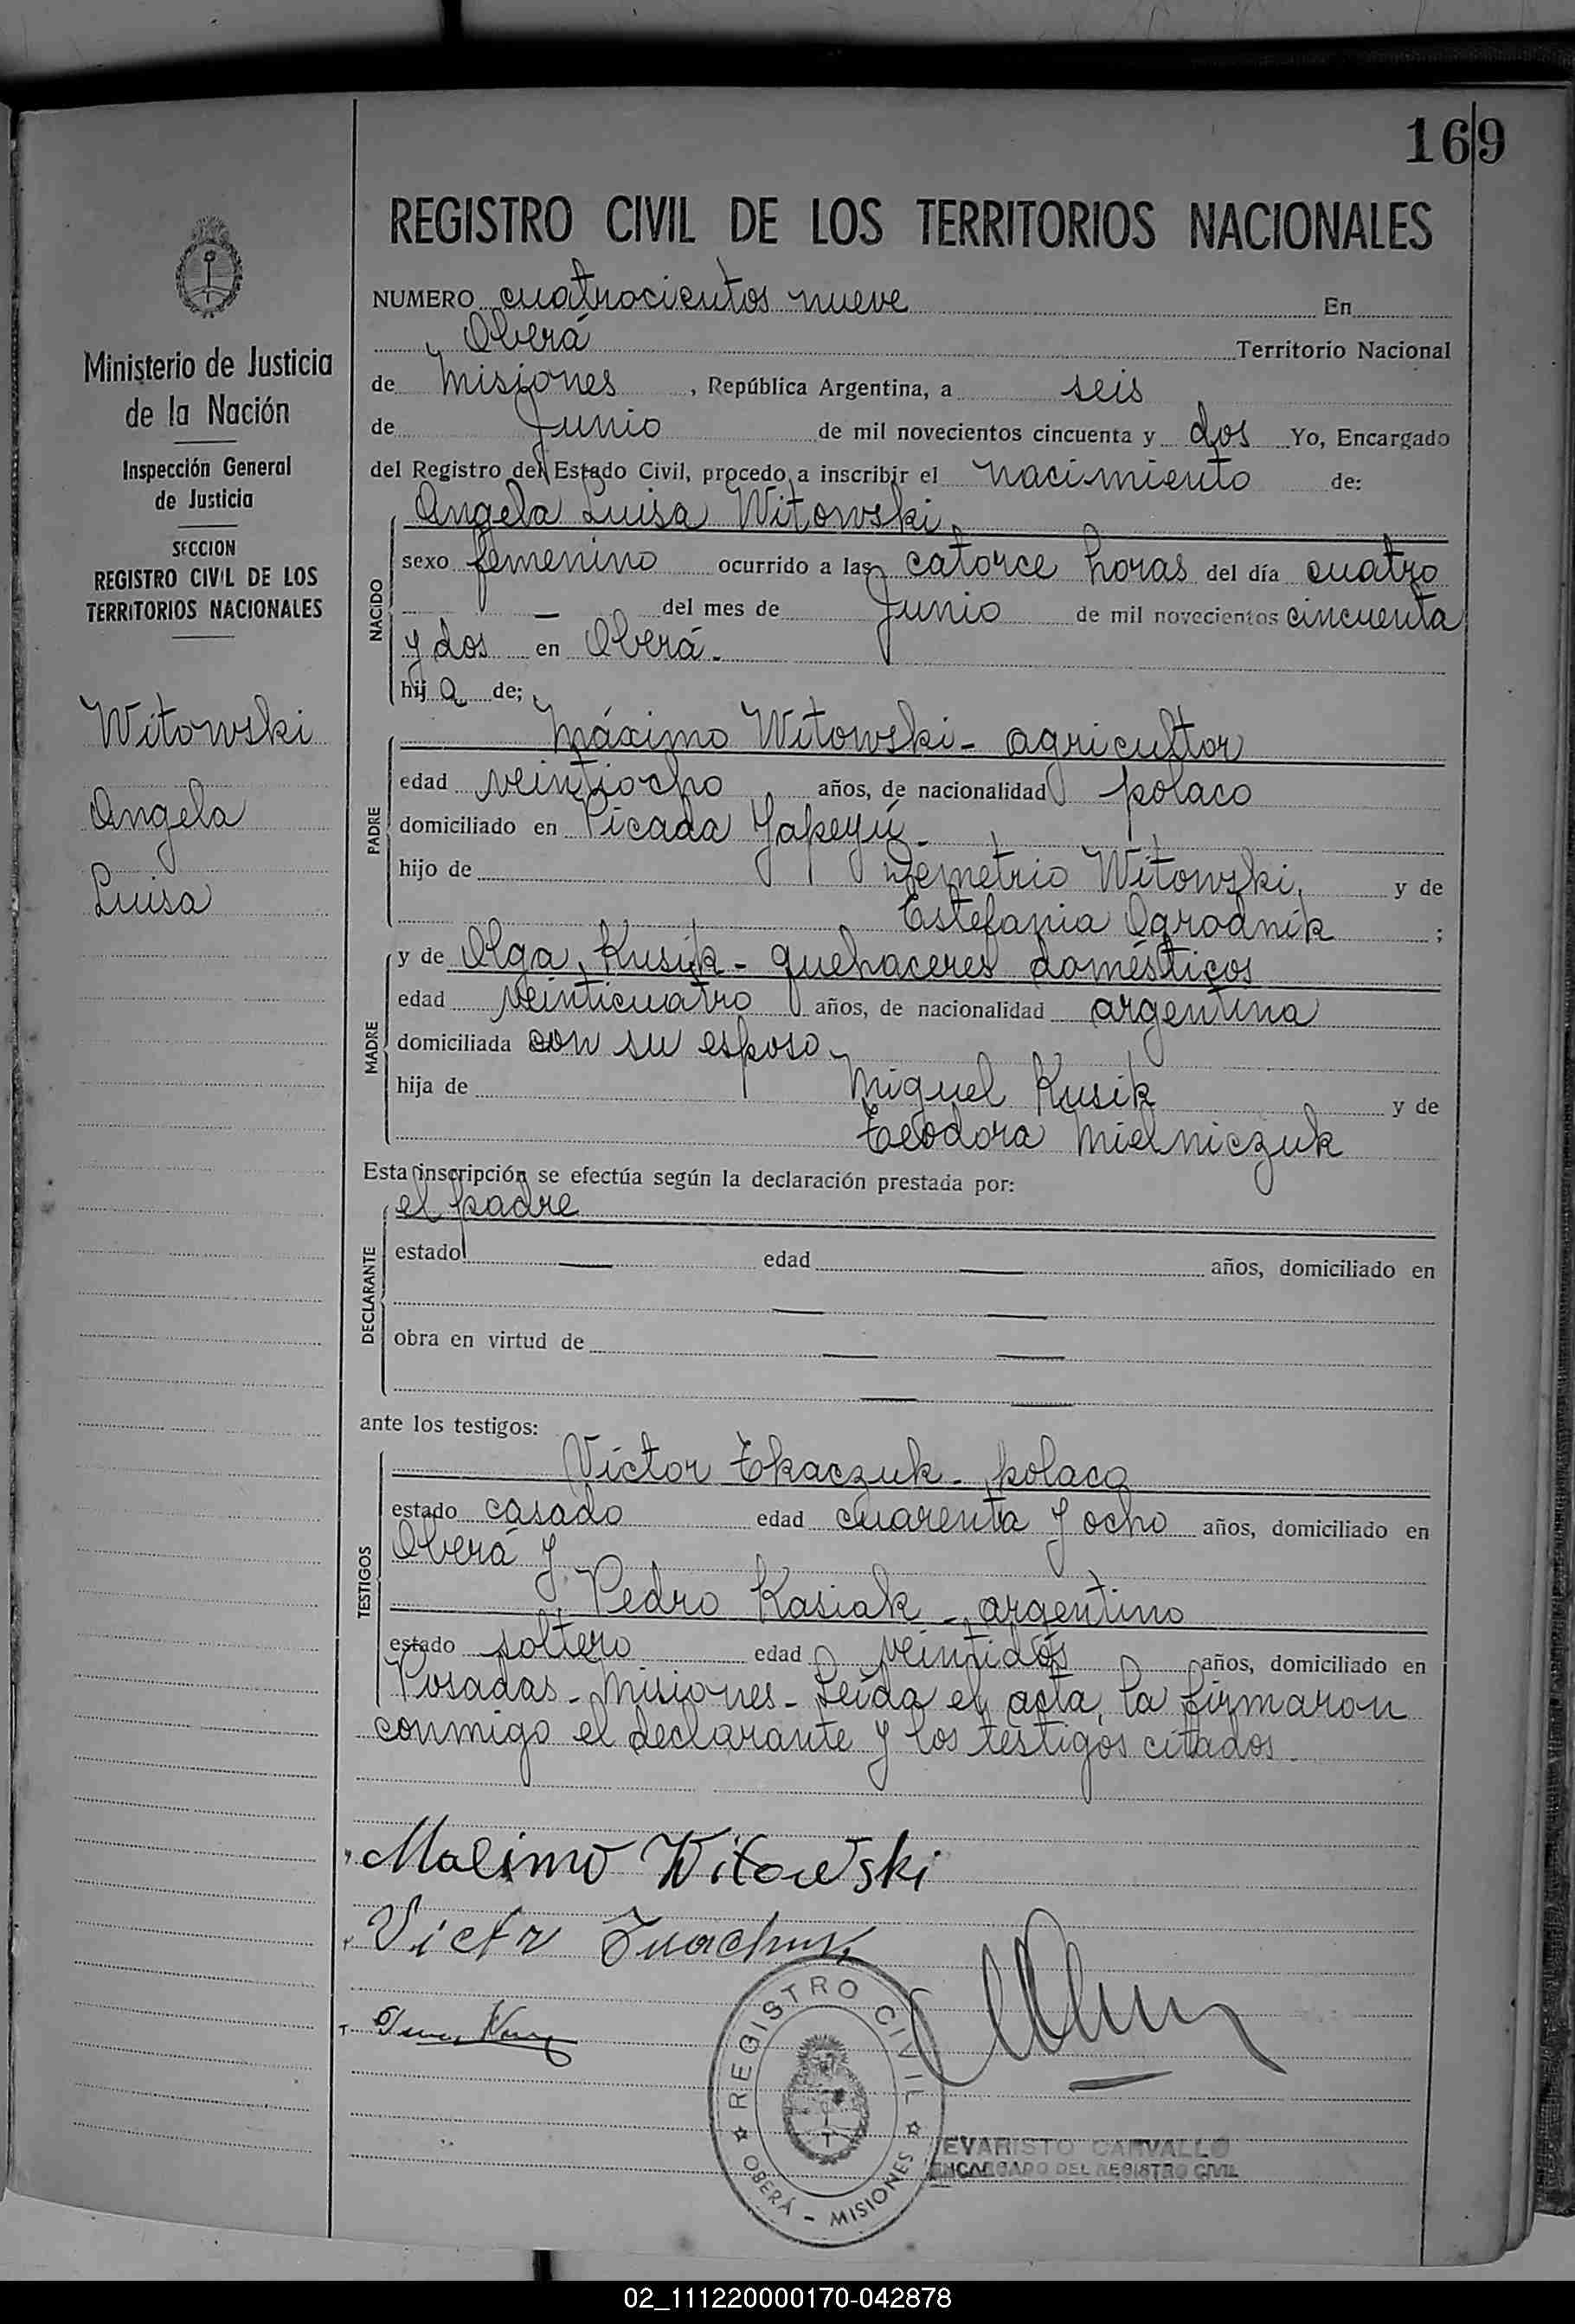 169
REGISTRO CIVIL DE LOS TERRITORIOS NACIONALES
Ministerio de Justicia
de la Nación
Inspección General
de Justicia
SECCION
REGISTRO CIVIL DE LOS
TERRITORIOS NACIONALES
Witowski
Angela
Luisa
NUMERO cuatrocientos nueve En
Oberá Territorio Nacional
de Misiones, República Argentina, a seis
de Junio de mil novecientos cincuenta y dos Yo, Encargado
del Registro del Estado Civil, procedo a inscribir el nacimiento de:
NACIDO
Angela Luisa Witowski,
sexo femenino ocurrido a las catorce horas del día cuatro
— del mes de Junio de mil novecientos cincuenta
y dos en Oberá.
hija de;
PADRE
Máximo Witowski - agricultor
edad veintiocho años, de nacionalidad polaco
domiciliado en Picada Yapeyú -
hijo de Demetrio Witowski, y de
Estefania Ogrodnik ;
MADRE
y de Olga Kusik - quehaceres domésticos
edad veinticuatro años, de nacionalidad argentina
domiciliada con su esposo -
hija de Miguel Kusik y de
Teodora Mielniczuk
Esta inscripción se efectúa según la declaración prestada por:
DECLARANTE
el padre
estado — edad — años, domiciliado en
— —
obra en virtud de — —
— —
ante los testigos:
TESTIGOS
Victor Tkaczuk - polaco
estado casado edad cuarenta y ocho años, domiciliado en
Oberá y
Pedro Kasiak - argentino
estado soltero edad veintidós años, domiciliado en
Posadas - Misiones - Leída el acta, la firmaron
conmigo el declarante y los testigos citados.
Malimo Witowski
Victr
REGISTRO CIVIL
OBERÁ - MISIONES
EVARISTO CARVALLO
ENCARGADO DEL REGISTRO CIVIL
02_111220000170-042878